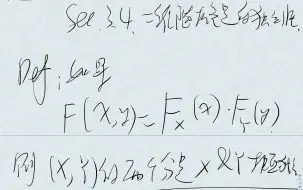 Sec 3.4. 二维随机变量的独立性.
Def: 如果
F(x,y)=F_X(x)·F_Y(y)
则 (X,Y)的两个分量 X 与 Y 相互独立